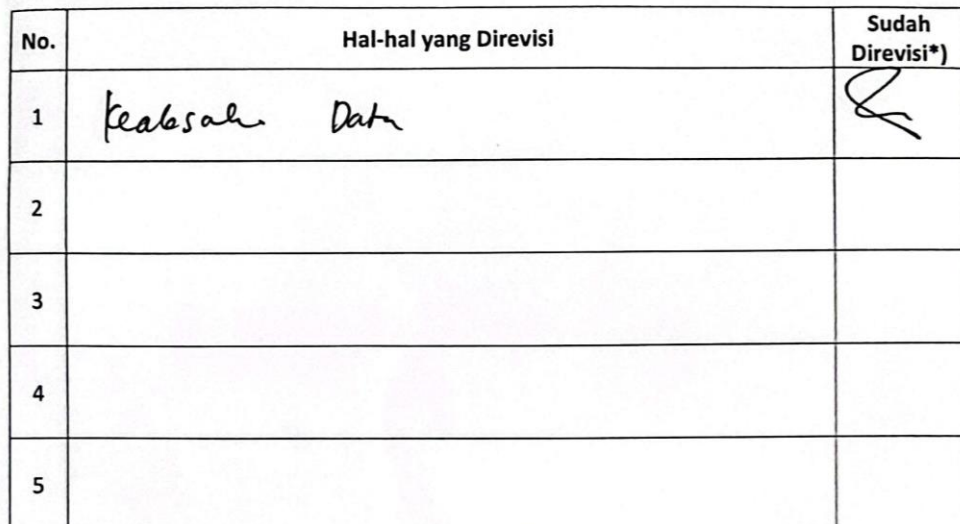 No. Hal-hal yang Direvisi Sudah Direvisi*)
1 Keabsah. Data
2
3
4
5